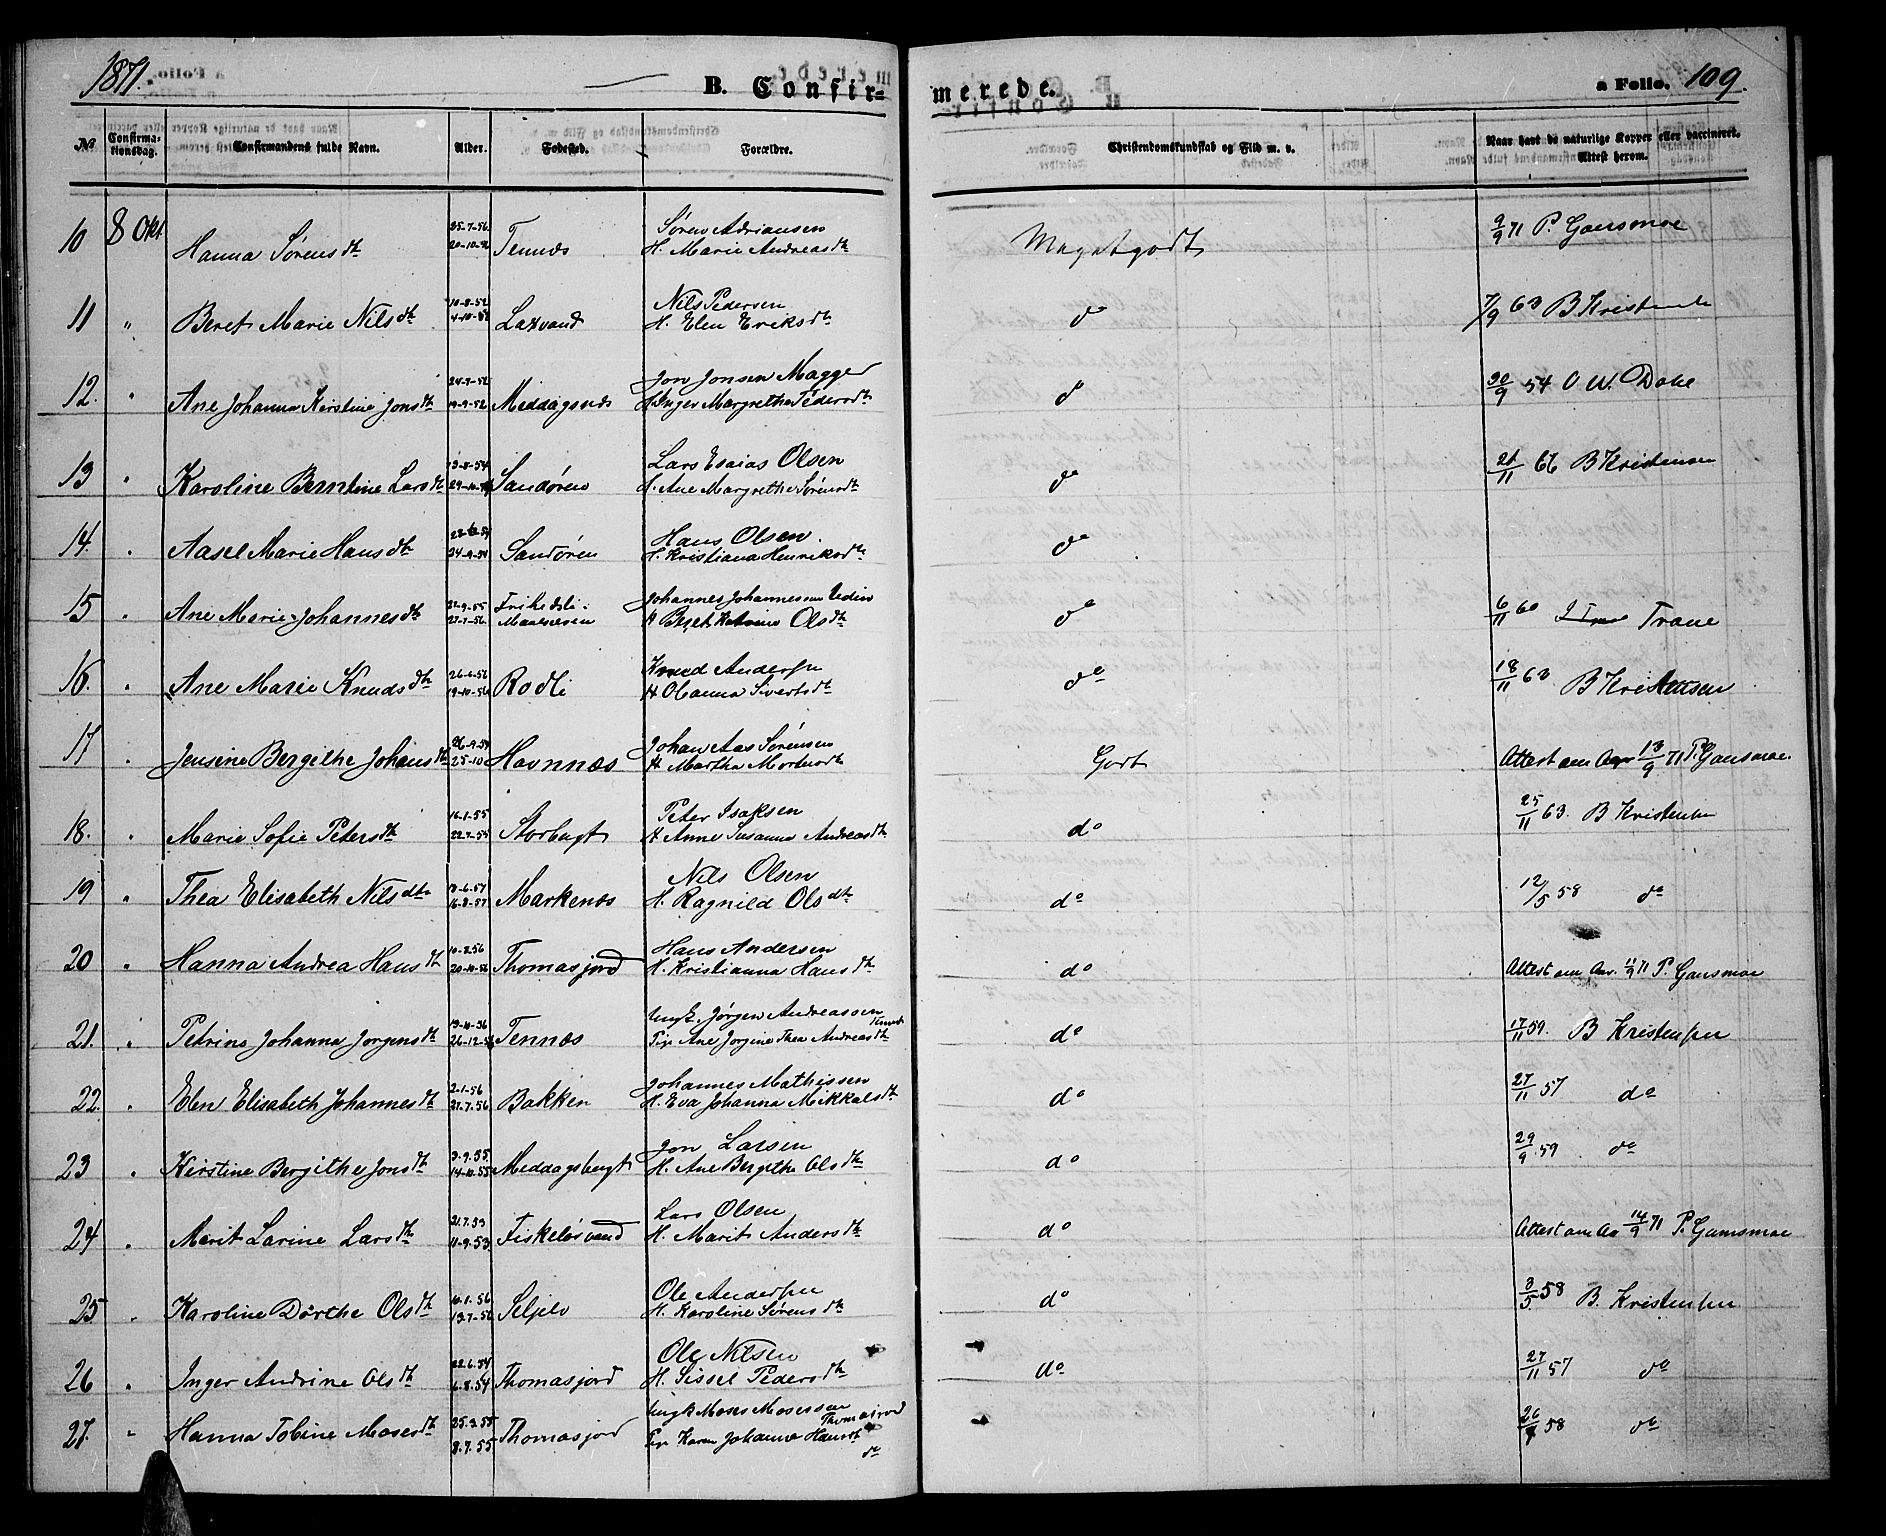 1871.
B. Confir=
merede.
a Folio. 109.
No
Confirma-
tionsdag.
Confirmandens fulde Navn.
Alder.
Fødested.
Forældre.
Christendomskundskab og Flid m. v.
Naar havt de naturlige Kopper eller vaccineret.
Attest herom.
10 8 Okt. Hanna Sørensdtr 25-7-56 20-10-56 Tennæs Søren Adriansen H. Marie Andreasdtr Meget godt 9/9 71 P. Gansmoe
11 " Beret Marie Nilsdtr 10-8-52 4-10-52 Laxvand Nils Pedersen H. Elen Eriksdtr do 7/9 63 B Kristensen
12. " Ane Johanna Kerstine Jonsdtr 24-7-52 19-9-52 Middagsnæs Jon Jonsen Magger H. Inger Margrethe Pedersdtr do 30/9 54 O W. Dahl
13 " Karoline Berntine Larsdtr 13-8-54 Sandøren Lars Esaias Olsen H. Ane Margrethe Sørensdtr do 26/11 66 B Kristensen
14. " Aasel Marie Hansdtr 24-9-54 Sandøren Hans Olsen. H. Kristiana Henriksdtr do
15 " Ane Marie Johannesdtr 27-7-56 Frihedsli - Maalselven Johannes Johannessen H Beret Katrine Olsdtr do 6/11 60 Trane
16. " Ane Marie Knudsdtr 26-6-56 19-10-56 Rodli Knud Andersen H Oleanna Sivertsdtr do 18/11 63 B Kristensen
17 " Jensine Bergithe Johansdtr 26-9-54 25-10 Havnnæs Johan Aas Sørensen H Martha Mortensdtr Godt Attest om 13/9 71 P. Gansmoe.
18. " Marie Sofie Petersdtr 16-1-55 22-7-55 Storbugt Peter Isaksen H Anne Susanna Andreasdtr do 25/11 63. B Kristensen
19 " Thea Elisabeth Nilsdtr 13-6-57 16-8-57 Markenæs Nils Olsen H. Ragnild Olsdtr do 12/5 58 do
20 " Hanna Andrea Hansdtr 10-8-56 20-10-56 Thomasjord Hans Andersen H. Kristianna Hansdtr do Attest om Anv. 11/9 71 P. Gansmoe
21. " Petrine Johanna Jørgensdtr 26-12-56 Tennæs Ungk. Jørgen Andreassen Tennæs Pige Ane Jørgine Thea Andreasdtr do 17/11 59. B Kristensen
22. " Elen Elisabeth Johannesdtr 2-1-56 27.7.56 Bakken Johannes Mathissen H. Eva Johanna Mikkalsdtr do 27/11 57 do
23 " Kirstine Bergithe Jonsdtr 3.9.55 14-10.55 Middagsbugt Jon Larsen H. Ane Bergithe Olsdtr do 29/9 59 do
24 " Marit Larine Larsdtr 21.7.53 11-9.53 Fiskeløsvand Lars Olsen H. Marit Andersdtr do Attest om 14/9 71 P. Gansmoe
25 " Karoline Dorthe Olsdtr 10.1.56 13.7-56 Seljelv Ole Andersen H. Karoline Sørensdtr do 3/5 58 B. Kristensen
26 " Inger Andrine Olsdtr 22.6.54 6.8.54 Thomasjord Ole Nilsen H. Sissel Pedersdtr do 27/11 57 do
27. " Hanna Tobine Mosesdtr 25.3.55 8.7.55 Thomasjord Ungk Moses Mosessen Thomasjord Pige Karen Johanna Hansdtr do 58 do